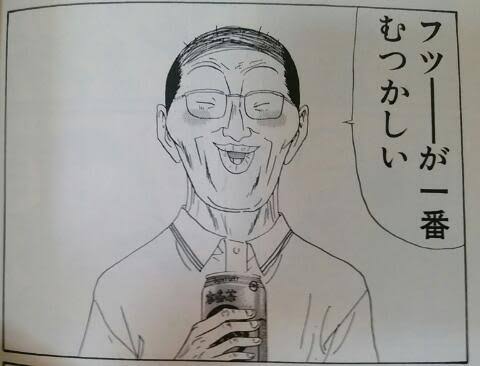 フツ━━が一番
むつかしい